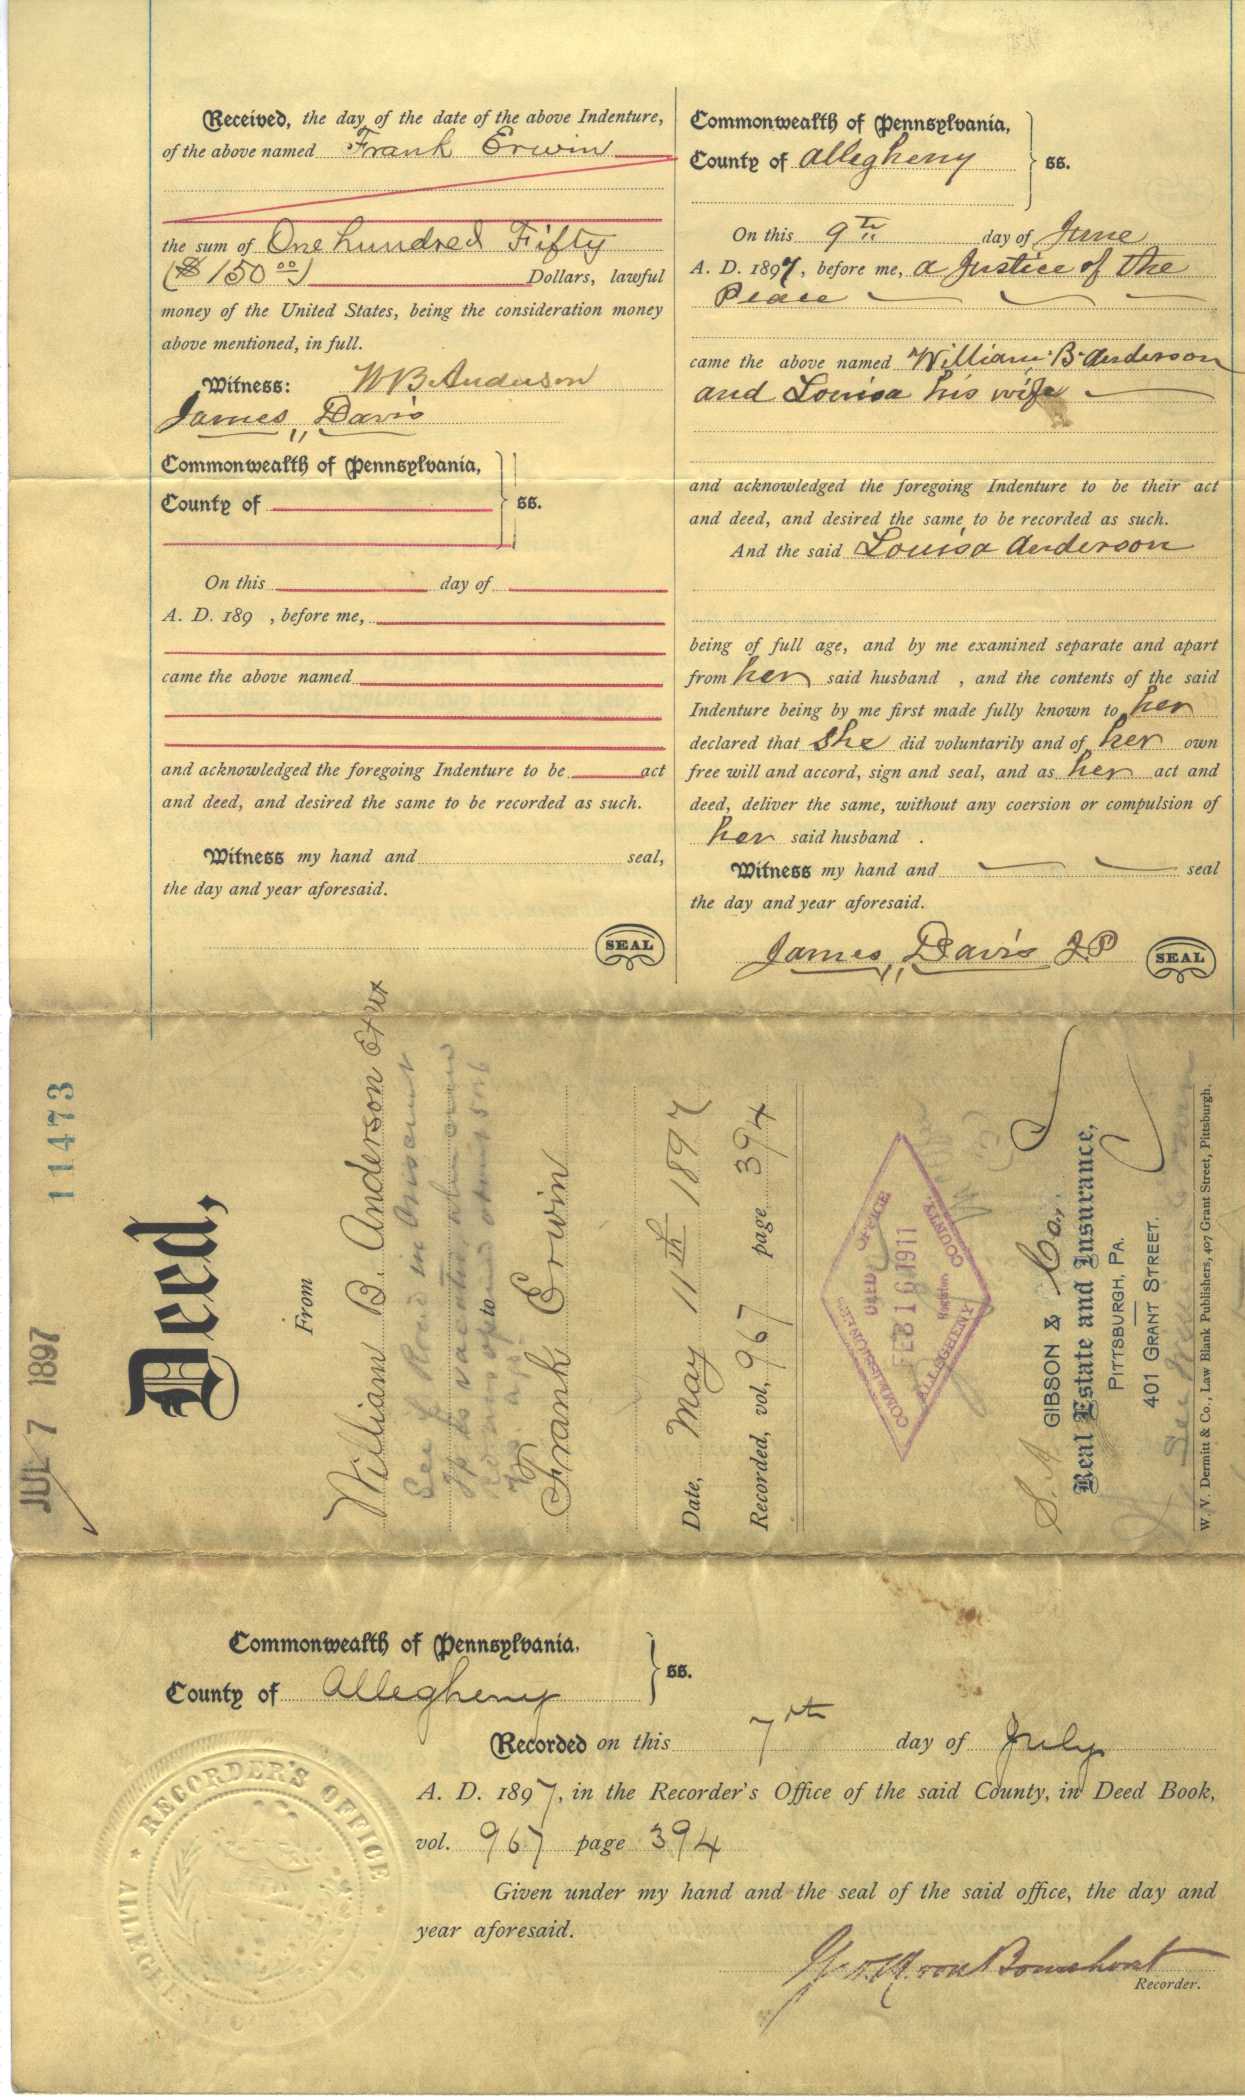 Received, the day of the date of the above Indenture,
of the above named Frank Erwin
the sum of One hundred Fifty
($150 00) Dollars, lawful
money of the United States, being the consideration money
above mentioned, in full.
Witness: W B Anderson
James Davis
Commonwealth of Pennsylvania,
County of ss.
On this day of
A. D. 189 , before me,
came the above named
and acknowledged the foregoing Indenture to be act
and deed, and desired the same to be recorded as such.
Witness my hand and seal,
the day and year aforesaid.
SEAL
Commonwealth of Pennsylvania,
County of Allegheny ss.
On this 9th day of June
A. D. 1897, before me, a Justice of the
Peace
came the above named William B. Anderson
and Louisa his wife
and acknowledged the foregoing Indenture to be their act
and deed, and desired the same to be recorded as such.
And the said Louisa Anderson
being of full age, and by me examined separate and apart
from her said husband , and the contents of the said
Indenture being by me first made fully known to her
declared that she did voluntarily and of her own
free will and accord, sign and seal, and as her act and
deed, deliver the same, without any coersion or compulsion of
her said husband .
Witness my hand and seal
the day and year aforesaid.
James Davis J P
SEAL
JUL 7 1897
11473
Deed,
From
William B. Anderson et ux
See Road in
to
Frank Erwin
Date, May 11th 1897
Recorded, vol, 967 page 394
COMMISSIONERS OFFICE
DEED
FEB 16 1911
Register
ALLEGHENY COUNTY.
S. A. GIBSON & Co.,
Real Estate and Insurance,
PITTSBURGH, PA.
401 GRANT STREET.
W. V. Dermitt & Co., Law Blank Publishers, 407 Grant Street, Pittsburgh.
Commonwealth of Pennsylvania,
County of Allegheny ss.
Recorded on this 7th day of July
A. D. 1897, in the Recorder's Office of the said County, in Deed Book,
vol. 967 page 394
Given under my hand and the seal of the said office, the day and
year aforesaid.
Recorder.
RECORDER'S OFFICE